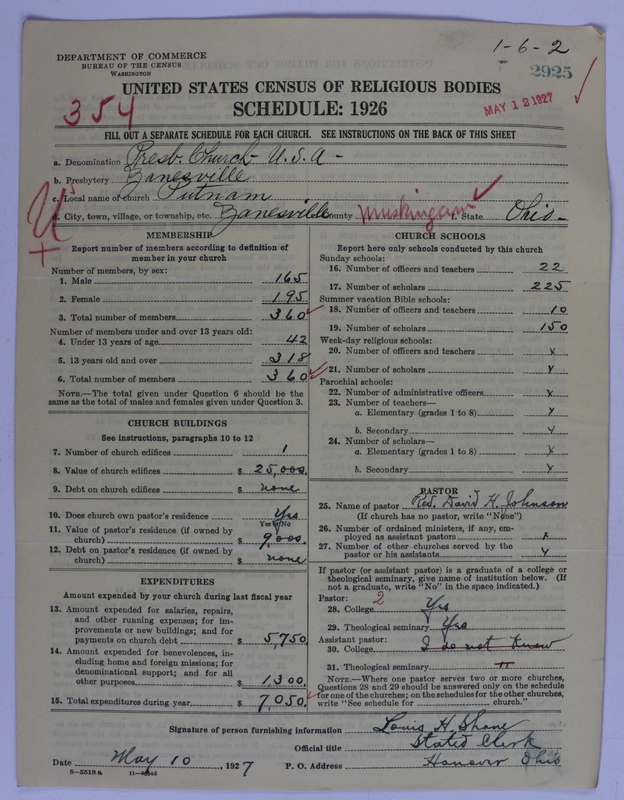 1-6-2
DEPARTMENT OF COMMERCE
BUREAU OF THE CENSUS
WASHINGTON
2925
UNITED STATES CENSUS OF RELIGIOUS BODIES
354
SCHEDULE: 1926
MAY 12 1927
FILL OUT A SEPARATE SCHEDULE FOR EACH CHURCH. SEE INSTRUCTIONS ON THE BACK OF THIS SHEET
a. Denomination Presb. Church - U.S.A -
b. Presbytery Zanesville
c. Local name of church Putnam
d. City, town, village, or township, etc. Zanesville County Muskingam f. State Ohio -
MEMBERSHIP
Report number of members according to definition of
member in your church
Number of members, by sex:
1. Male 165
2. Female 195
3. Total number of members 360
Number of members under and over 13 years old:
4. Under 13 years of age 42
5. 13 years old and over 318
6. Total number of members 360
NOTE.—The total given under Question 6 should be
same as the total of males and females given under Question 3.
CHURCH BUILDINGS
See instructions, paragraphs 10 to 12
7. Number of church edifices 1
8. Value of church edifices $ 25,000.
9. Debt on church edifices $ none
10. Does church own pastor's residence Yes
Yes or No
11. Value of pastor's residence (if owned by
church) $ 9,000.
12. Debt on pastor's residence (if owned by
church) $ none
EXPENDITURES
Amount expended by your church during last fiscal year
13. Amount expended for salaries, repairs,
and other running expenses; for im-
provements or new buildings; and for
payments on church debt $ 5,750.
14. Amount expended for benevolences, in-
cluding home and foreign missions; for
denominational support; and for all
other purposes $ 1,300.
15. Total expenditures during year $ 7,050.
CHURCH SCHOOLS
Report here only schools conducted by this church
Sunday schools:
16. Number of officers and teachers 22
17. Number of scholars 225
Summer vacation Bible schools:
18. Number of officers and teachers 10
19. Number of scholars 150
Week-day religious schools:
20. Number of officers and teachers x
21. Number of scholars x
Parochial schools:
22. Number of administrative officers x
23. Number of teachers—
a. Elementary (grades 1 to 8) x
b. Secondary x
24. Number of scholars—
a. Elementary (grades 1 to 8) x
b. Secondary x
PASTOR
25. Name of pastor Rev. David H. Johnson
(If church has no pastor, write "None")
26. Number of ordained ministers, if any, em-
ployed as assistant pastors x
27. Number of other churches served by the
pastor or his assistants x
If pastor (or assistant pastor) is a graduate of a college or
theological seminary, give name of institution below. (If
not a graduate, write "No" in the space indicated.)
Pastor: 2
28. College Yes
29. Theological seminary Yes
Assistant pastor:
30. College I do not know
31. Theological seminary "
NOTE.—Where one pastor serves two or more churches,
Questions 28 and 29 should be answered only on the schedule
for one of the churches; on the schedules for the other churches,
write "See schedule for church."
Signature of person furnishing information Louis H. Shane
Official title Stated Clerk
Date May 10, 1927 P. O. Address Hanover Ohio
8-5518 a